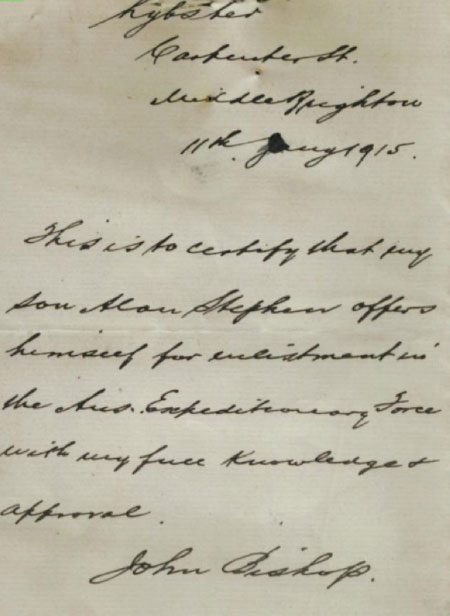 Kybster
Carpenter St.
Middle Brighton
11th Jany 1915.
This is to certify that my
son Alan Stephen offers
himself for enlistment in
the Aus. Expeditionary Force
with my full knowledge &
approval.
John Bishop.